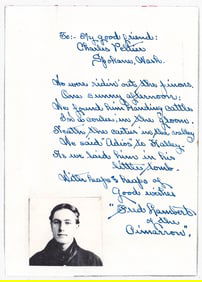 To:- My good friend:
Charles Peltier
Spokane, Wash.
We were ridin' out the pinons,
One sunny afternoon;
We found him standing cattle
in the gloom.
Neath the in the valley
We said "Adios" to Hatley,
As we laid him in his
little tomb.
With heaps & heaps of
Good wishes
"Fred Lambert
of the
Cimarron".